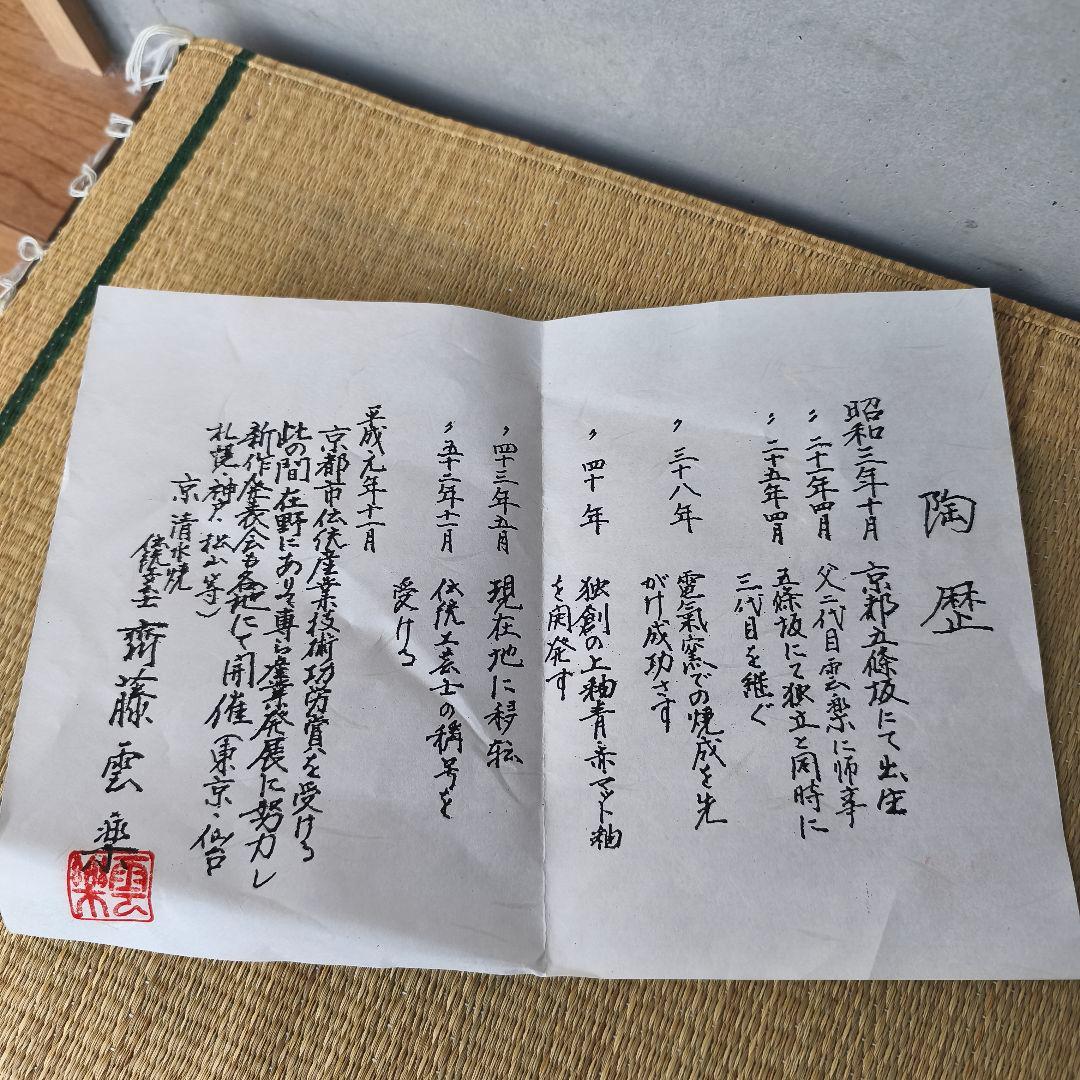 陶歴
昭和三年十月 京都五條坂にて出生
〃二十二年四月 父二代目雲楽に師事
〃二十五年四月 五條坂にて独立と同時に
三代目を継ぐ
〃三十八年 電氣窯での焼成を先
がけ成功さす
〃四十年 独創の上釉青・赤マット釉
を開発す
〃四十三年五月 現在地に移転
〃五十二年十一月 伝統工芸士の称号を
受ける
平成元年十一月
京都市伝統産業技術功労賞を受ける
此の間在野にありて専ら産業発展に努力し
新作発表会も各地にて開催(東京・仙台
札幌・神戸・松山等)
京清水焼
伝統工芸士 齊藤雲楽
雲楽